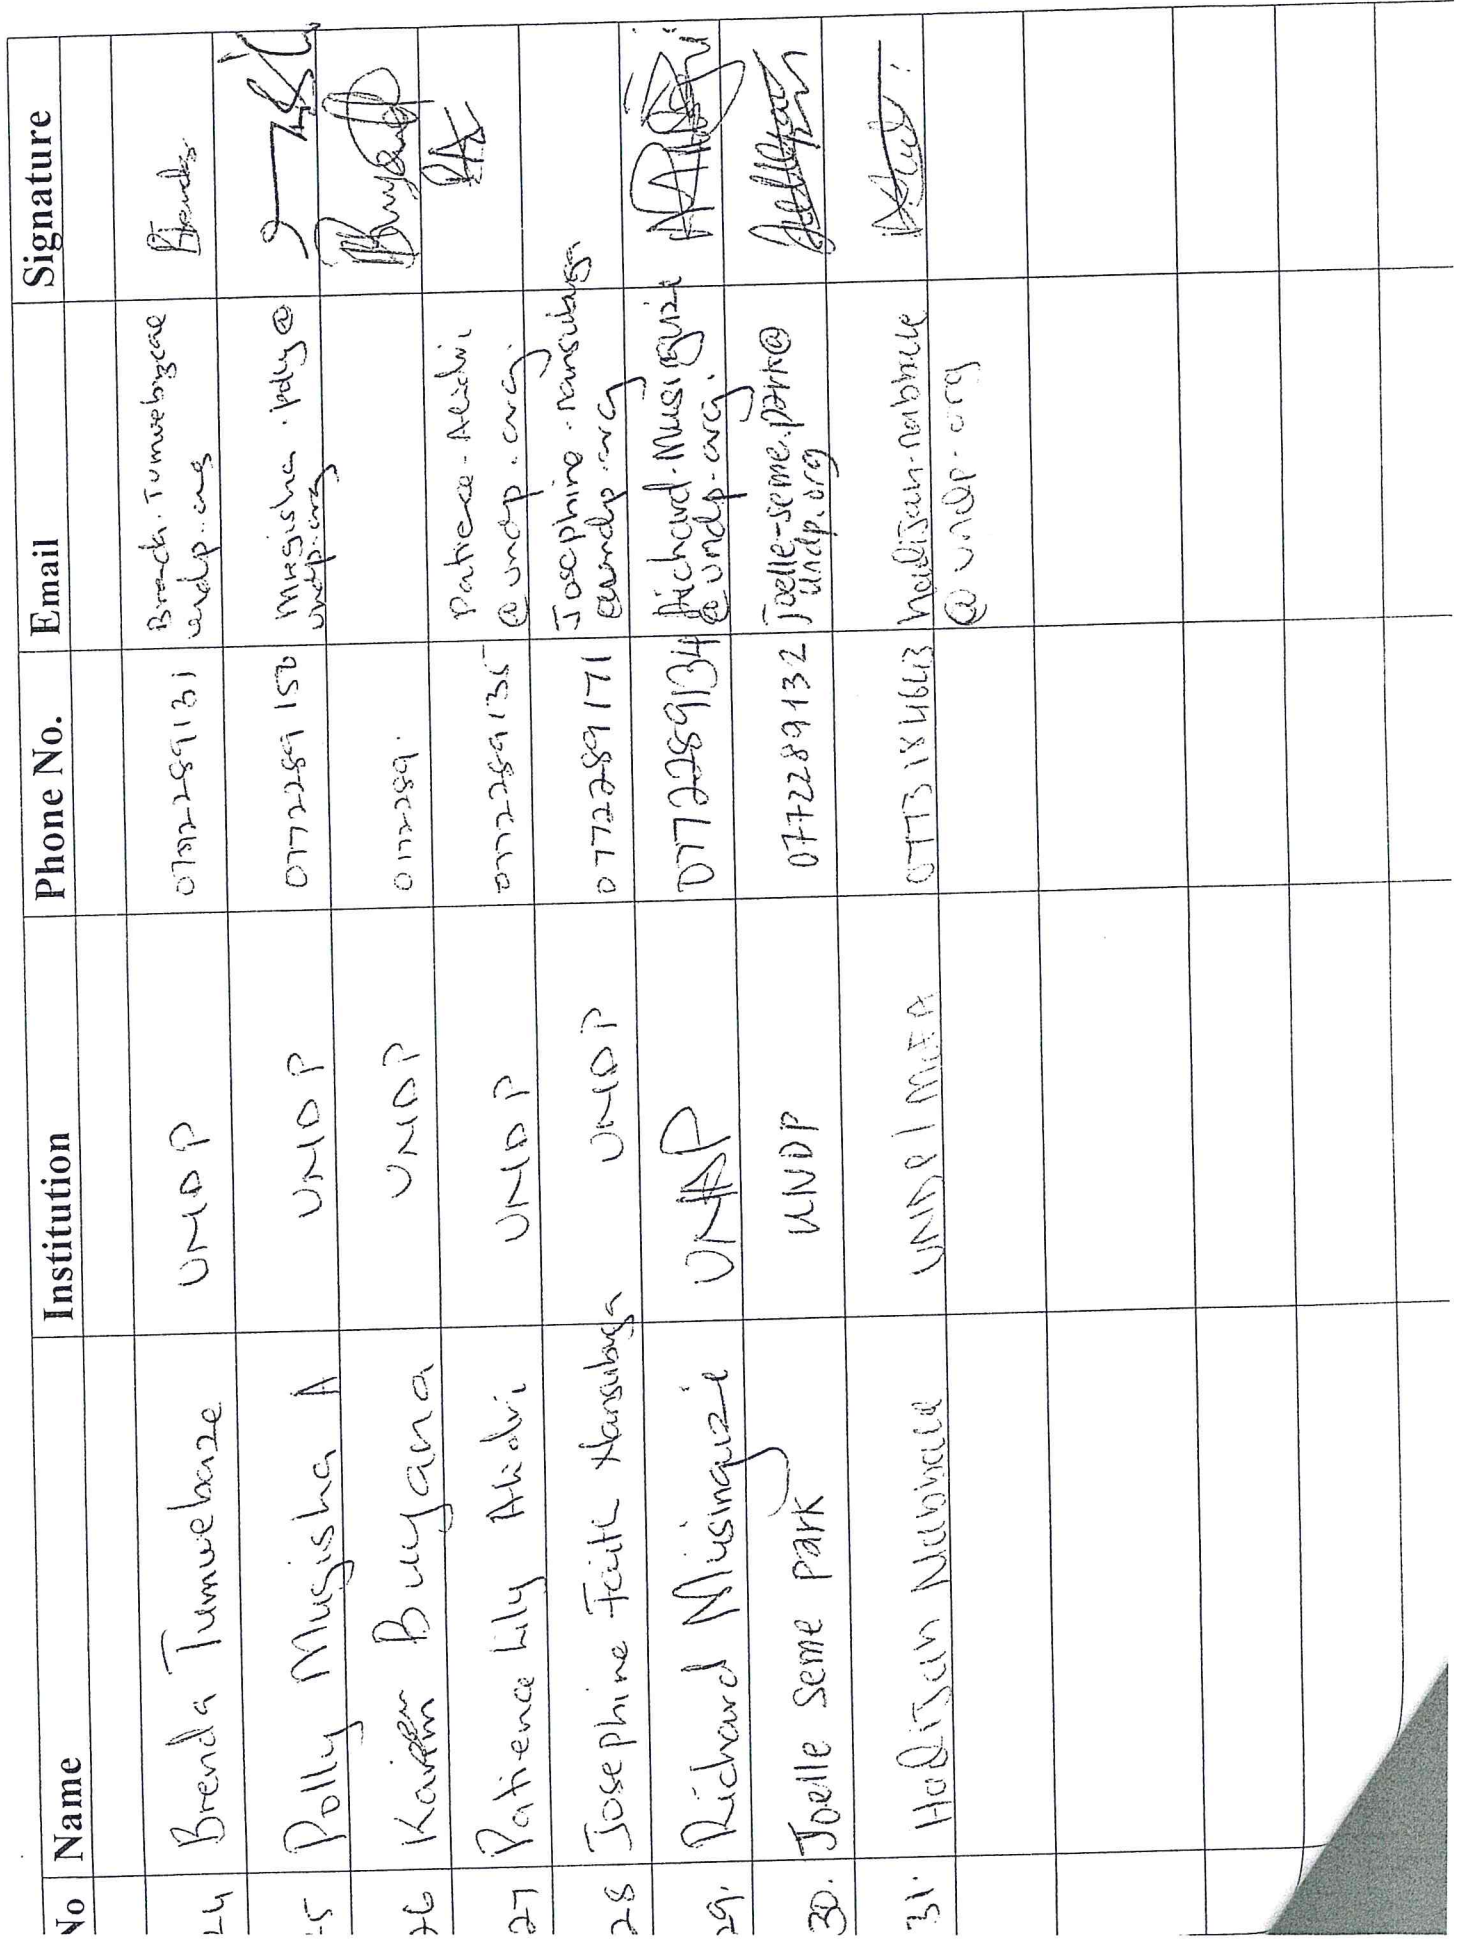 No Name Institution Phone No. Email Signature
24 Brenda Tumwebaze UNDP 0772289131 Brenda.Tumwebaze
undp.org
25 Polly Mugisha A UNDP 0772289150 Mugisha.polly@
undp.org
26 Karim Buyana UNDP 0772289.
27 Patience Lily Alidri UNDP 0772289135 Patience.Alidri
@undp.org.
28 Josephine Faith Nansubuga UNDP 0772289171 Josephine.nansubuga
@undp.org
29. Richard Musinguzi UNDP 0772289134 Richard.Musinguzi
@undp.org.
30. Joelle Seme Park UNDP 0772289132 Joelle-seme.park@
undp.org
31. Hadijah Nabbale UNDP/MFA hadijah.nabbale
@undp.org